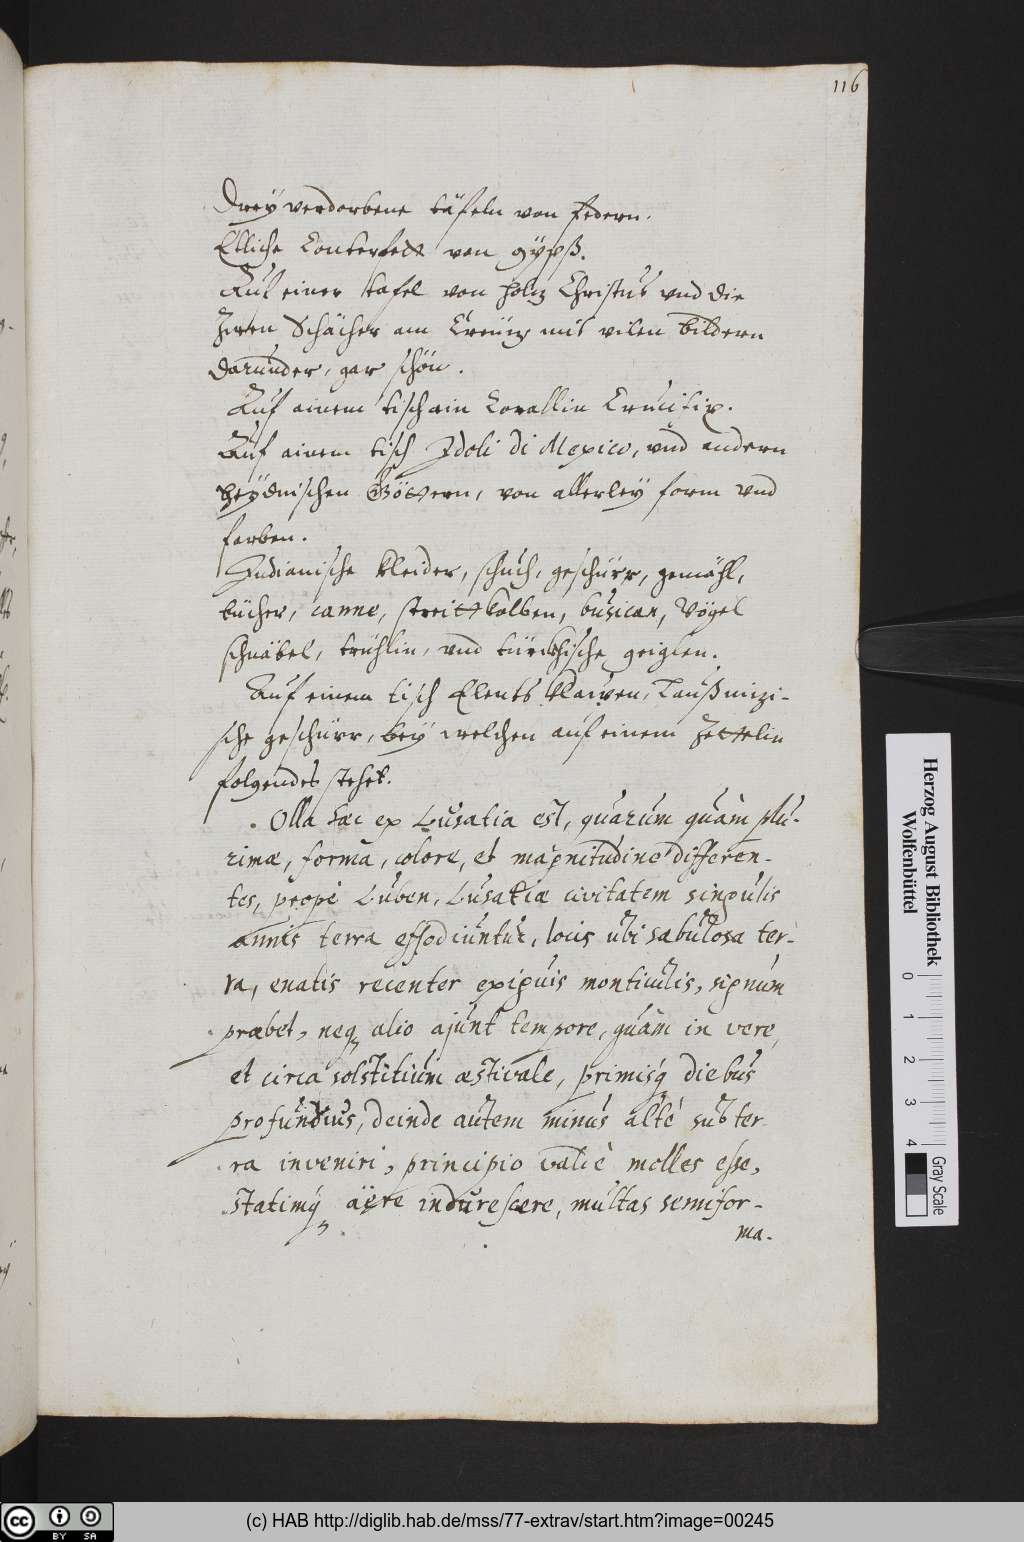 116
Drey verdorbene täfeln von federn.
Etliche Conterfett von gÿpß.
Auf einer tafel von holtz Christus vnd die
Zwen Schächer am Creütz mit vilen bildern
darunder, gar schön.
Auf ainem tisch ain Corallin Crucifix.
Auf ainem tisch Idoli di Mexico, vnd andern
heÿdnischen Göttern, von allerleÿ form vnd
farben.
Indianische kleider, schuch, geschürr, gemähl,
tücher, canne, streittkolben, busican, Vögel
schnäbel, trühlin, vnd türckhische geiglen.
Auf einem tisch Elents klawen, Laußnizi-
sche geschürr, beÿ welchen auf einem Zettelin
folgendes stehet.
Olla haec ex Lusatia est, quarum quàm plu-
rimæ, forma, colore, et magnitudine differen-
tes, propè Luben, Lusatiæ civitatem singulis
annis terra effodiuntur, locis ubi sabulosa ter-
ra, enatis recenter exiguis monticulis, signum
præbet, neq alio ajunt tempore, quàm in vere,
et circa solstitium æstivale, primisq diebus
profundius, deinde autem minus altè sub ter-
ra inveniri, principio valdè molles esse,
statimq aëre indurescere, multas semifor-
ma-
Herzog August Bibliothek
Wolfenbüttel
0 1 2 3 4
Gray Scale
CC BY SA
(c) HAB http://diglib.hab.de/mss/77-extrav/start.htm?image=00245